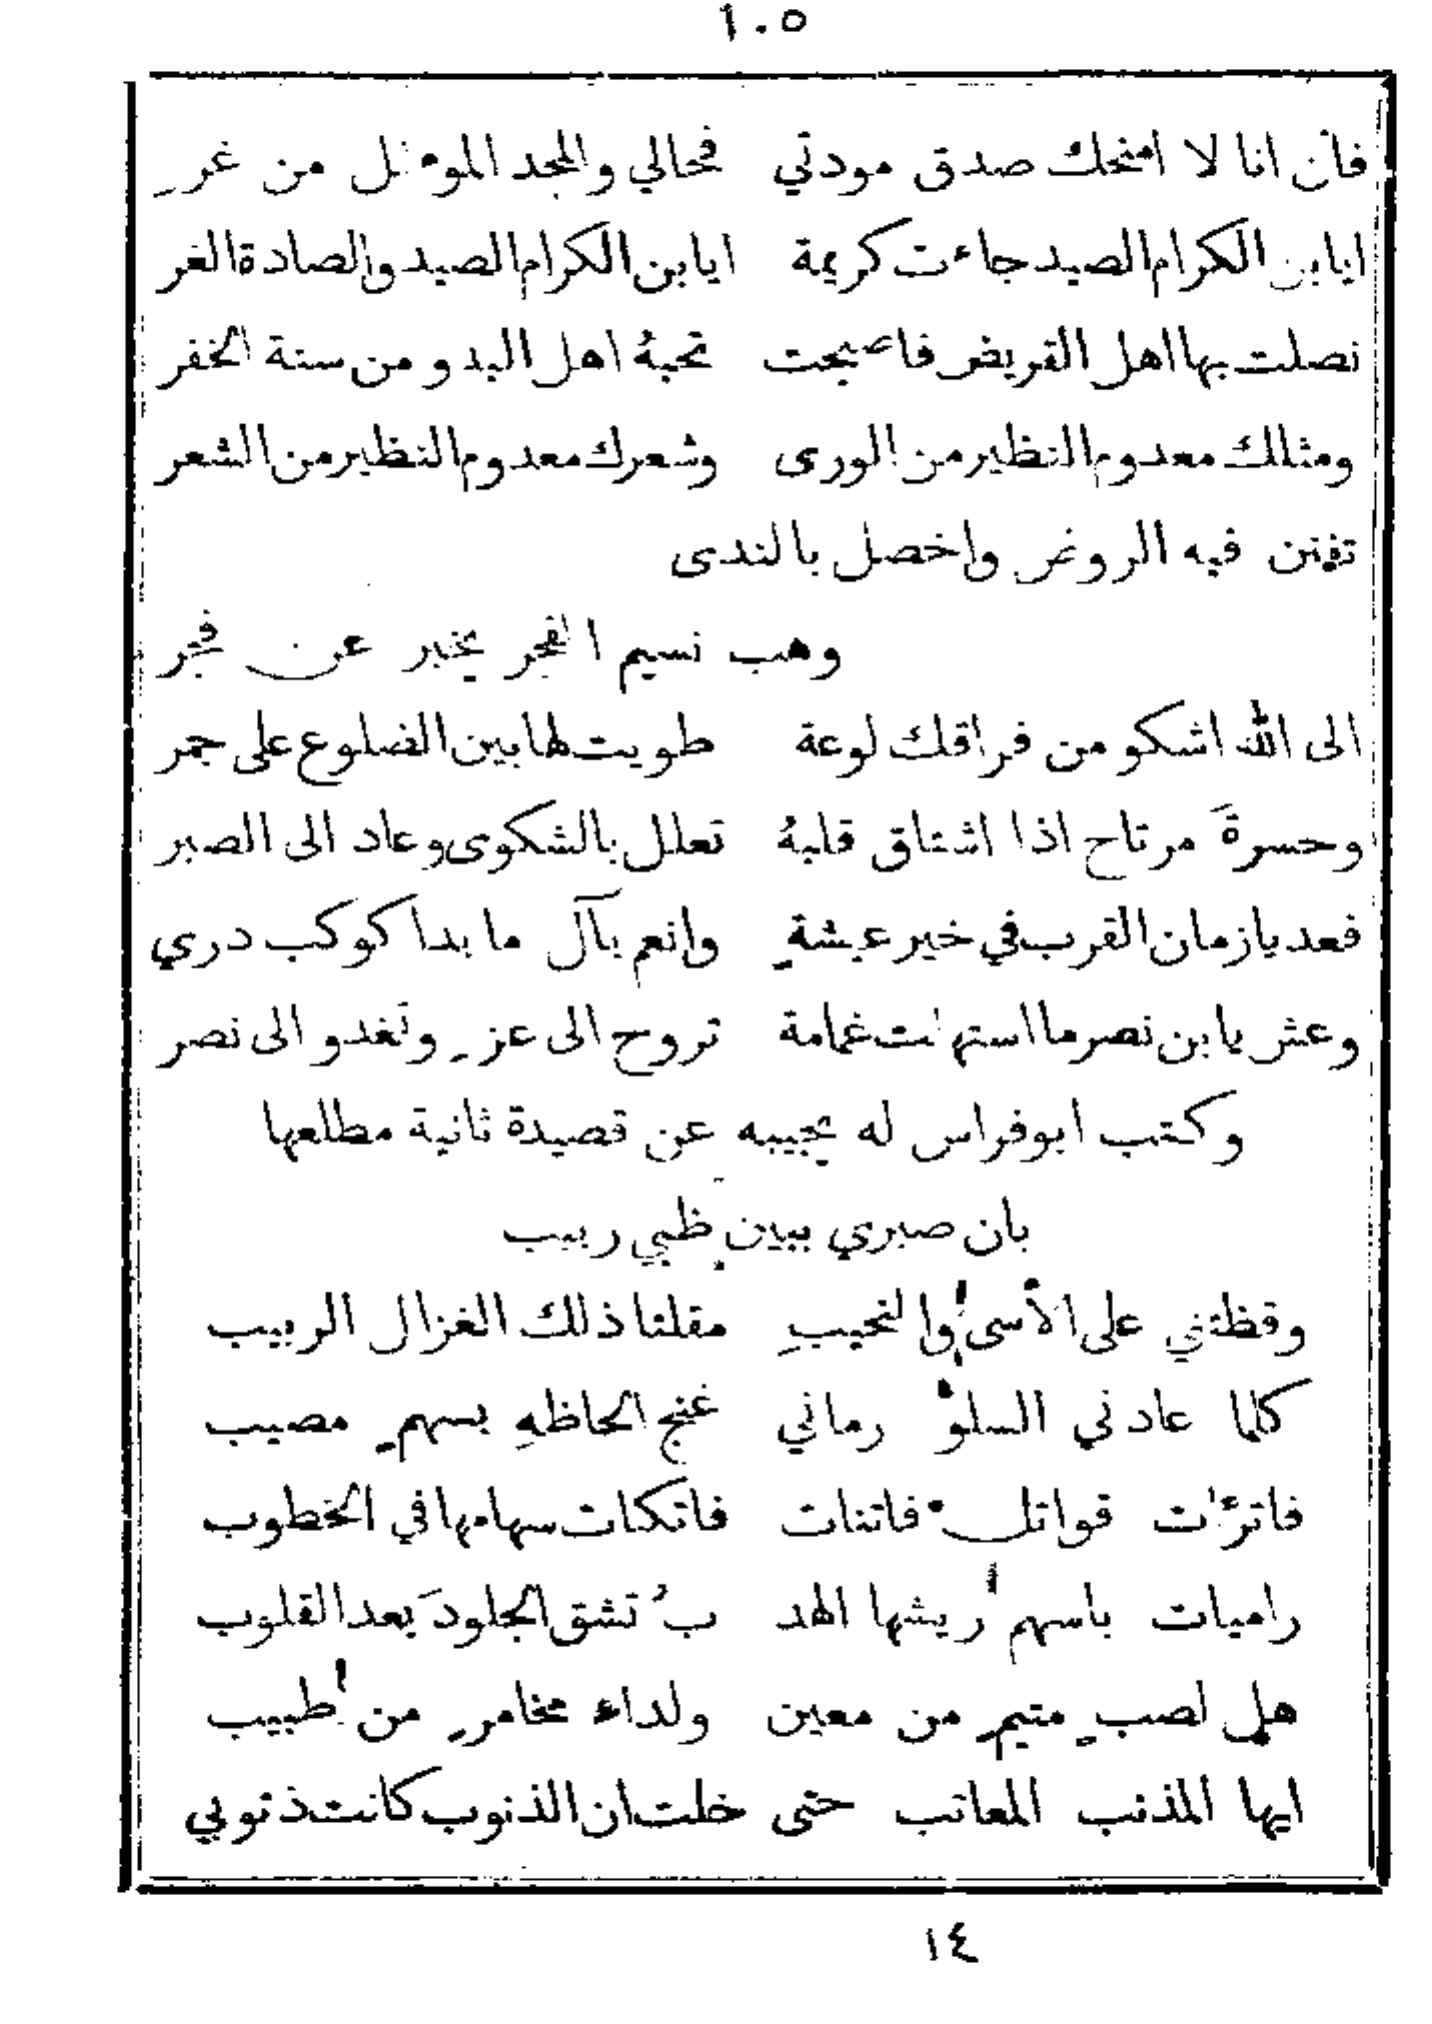 ١٠٥
فان انا لا امنحك صدق مودتي فحالي والمجد الموءثل من غرِ
ايابن الكرام الصيد جاءت كريمة ايابن الكرام الصيد والصادة الغر
نصلت بها اهل القريض فاصبحت تحبهُ اهل البدو من سنة الخفر
ومثلك معدوم النظير من الورى وشعرك معدوم النظير من الشعر
تفنن فيه الروض واخضل بالندى
وهب نسيم الفجر يخبر عن فجر
الى الله اشكو من فراقك لوعة طويت لها بين الضلوع على جمر
وحسرةَ مرتاح اذا اشتاق قلبهُ تعلل بالشكوى وعاد الى الصبر
فعد يا زمان القرب في خير عيشةٍ وانعم بآل ما بدا كوكب دري
وعش يا بن نصر ما استهلت غمامة تروح الى عزٍ وتغدو الى نصر
وكتب ابو فراس له يجيبه عن قصيدة ثانية مطلعها
بان صبري ببين ظبي ربيب
وقظتني على الأسى والنحيبِ مقلتا ذلك الغزال الربيب
كلما عادني السلوُّ رماني غنج الحاظهِ بسهمٍ مصيب
فاترات قواتل فاتنات فاتكات سهامها في الخطوب
راميات باسهم ريشها الهد بُ تشق الجلودَ بعد القلوب
هل لصبٍ متيمٍ من معين ولداء مخامرٍ من طبيب
ايها المذنب المعاتب حتى خلت ان الذنوب كانت ذنوبي
١٤